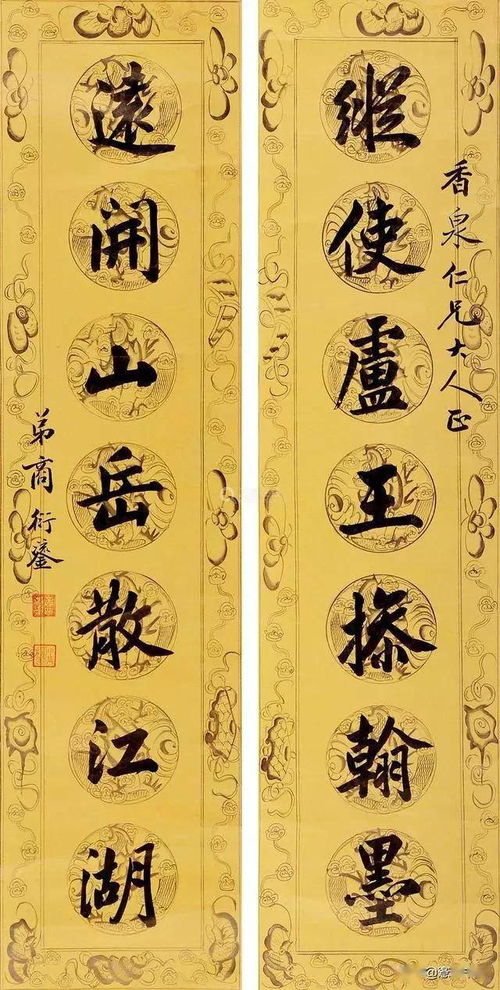 香泉仁兄大人正
縱使盧王摻翰墨
遠開山岳散江湖
弟商衍鎏